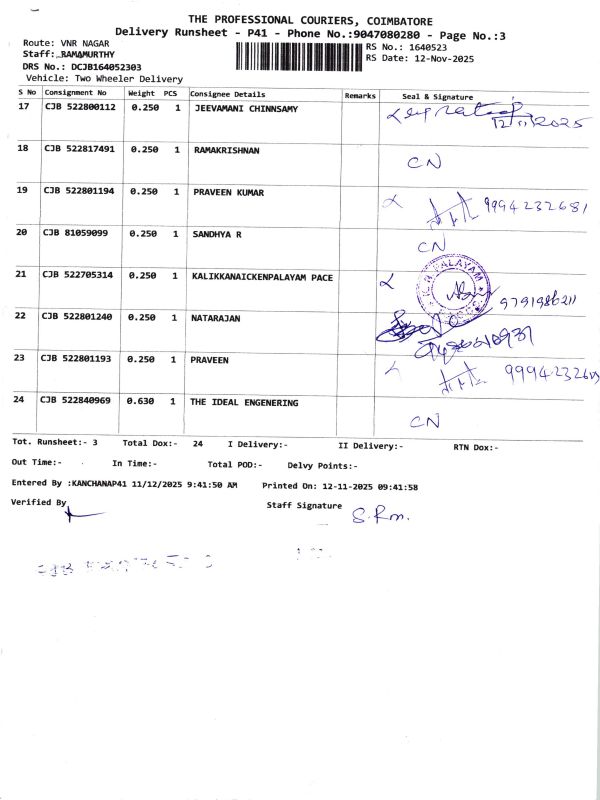 THE PROFESSIONAL COURIERS, COIMBATORE
Delivery Runsheet - P41 - Phone No.:9047080280 - Page No.:3
Route: VNR NAGAR
RS No.: 1640523
Staff: RAMAMURTHY
RS Date: 12-Nov-2025
DRS No.: DCJB164052303
Vehicle: Two Wheeler Delivery
S No Consignment No Weight PCS Consignee Details Remarks Seal & Signature
17 CJB 522800112 0.250 1 JEEVAMANI CHINNSAMY
12/11/2025
18 CJB 522817491 0.250 1 RAMAKRISHNAN CN
19 CJB 522801194 0.250 1 PRAVEEN KUMAR 9994232681
20 CJB 81059099 0.250 1 SANDHYA R CN
21 CJB 522705314 0.250 1 KALIKKANAICKENPALAYAM PACE
9791986211
22 CJB 522801240 0.250 1 NATARAJAN
23 CJB 522801193 0.250 1 PRAVEEN
24 CJB 522840969 0.630 1 THE IDEAL ENGENERING CN
Tot. Runsheet:- 3 Total Dox:- 24 I Delivery:- II Delivery:- RTN Dox:-
Out Time:- In Time:- Total POD:- Delvy Points:-
Entered By :KANCHANAP41 11/12/2025 9:41:50 AM Printed On: 12-11-2025 09:41:58
Verified By Staff Signature
S.Rm.